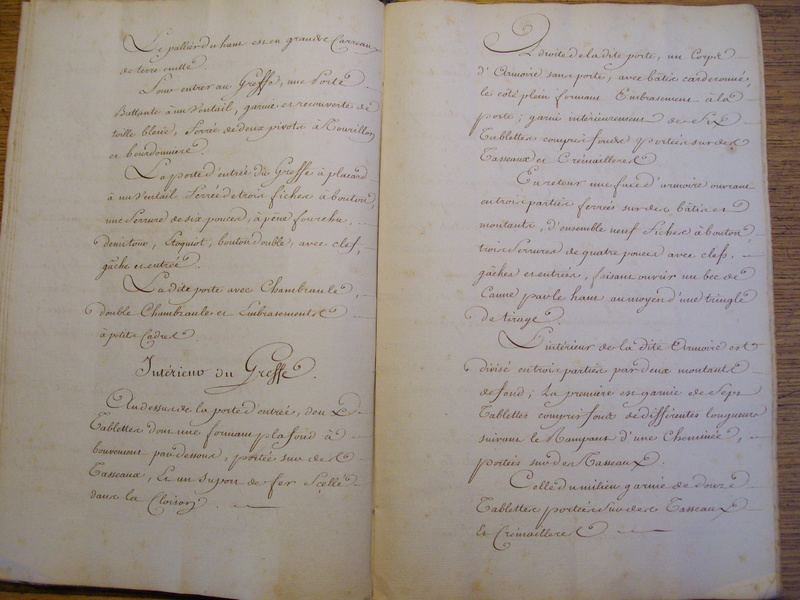 Le pallier du haut est en grande Carreaux
de terre cuitte.
Pour entrer au Greffe, une Porte
Battante à un Ventail, garnie et recouverte de
toille bleüe, ferrée de deux pivots à Tourillon
et bourdonniere.
La porte d'entrée du Greffe à placard
à un Ventail ferrée de trois fiches à bouton,
une Serrure de six pouces, à pêne fourchu,
demi tour, bouton double, avec clef,
gâche et entrée.
La dite porte avec Chambranle,
double Chambranle et Embrasements
à petits Cadres
Intérieur du Greffe.
Au dessus de la porte d'entrée, deux
Tablettes dont une formant plafond à
bouvement par dessous, portée sur des
Tasseaux, Et un suport de fer Scellé
dans la Cloison.
À droite de la dite porte, un Corps
d'Armoire sans porte, avec bâtis carderonné,
le côté plein formant Embrasement à la
porte; garni intérieurement de Six
Tablettes compris fond portées sur des
Tasseaux et Crémailleres
En retour une face d'armoire ouvrant
en trois parties ferrées sur des bâtis et
montants, d'ensemble neuf fiches à bouton,
trois Serrures de quatre pouces avec clefs,
gâches et entrées, faisant ouvrir un bec de
Canne par le haut au moyen d'une tringle
de tirage.
L'intérieur de la dite Armoire est
divisé en trois parties par deux montants
de fond; La premiere est garnie de Sept
Tablettes compris fond de différentes longueurs
suivant le Rampant d'une Cheminée,
portées sur des Tasseaux.
Celle du milieu garnie de douze
Tablettes portées Sur des Tasseaux
Et Crémailleres